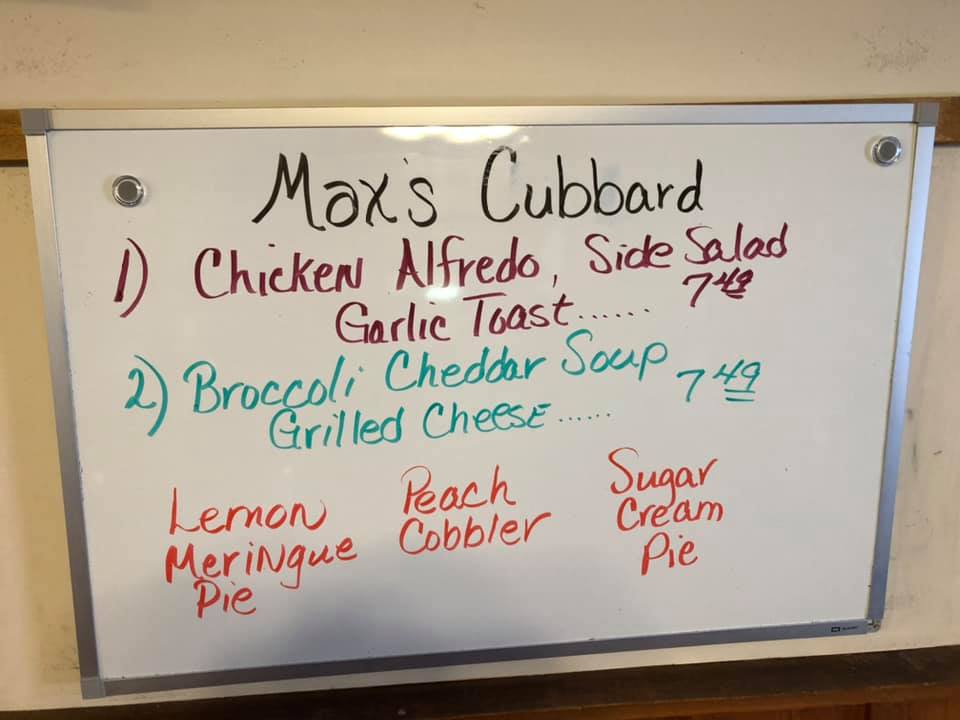 Max's Cubbard
1) Chicken Alfredo, Side Salad
Garlic Toast...... 7 49
2) Broccoli Cheddar Soup
Grilled Cheese...... 7 49
Lemon Meringue Pie
Peach Cobbler
Sugar Cream Pie